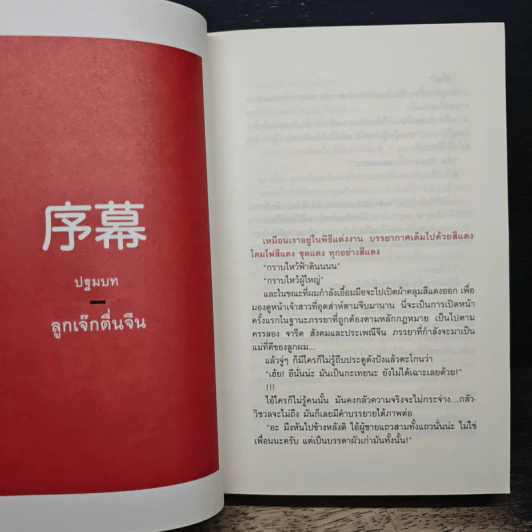 序幕
ปฐมบท
ลูกเจ๊กตื่นจีน
เหมือนเราอยู่ในพิธีแต่งงาน บรรยากาศเต็มไปด้วยสีแดง
โคมไฟสีแดง ชุดแดง ทุกอย่างสีแดง
"กราบไหว้ฟ้าดินนนน"
"กราบไหว้ผู้ใหญ่"
และในขณะที่ผมกำลังเอื้อมมือจะไปเปิดผ้าคลุมสีแดงออก เพื่อ
มองดูหน้าเจ้าสาวที่อุตส่าห์ตามจีบมานาน นี่จะเป็นการเปิดหน้า
ครั้งแรกในฐานะภรรยาที่ถูกต้องตามหลักกฎหมาย เป็นไปตาม
ครรลอง จารีต สังคมและประเพณีจีน ภรรยาที่กำลังจะมาเป็น
แม่ที่ดีของลูกผม...
แล้วจู่ๆ ก็มีใครก็ไม่รู้ถีบประตูดังปังแล้วตะโกนว่า
"เฮ้ย! อีนั่นน่ะ มันเป็นกะเทยนะ ยังไม่ได้เฉาะเลยด้วย!"
!!!
ไอ้ใครก็ไม่รู้คนนั้น มันคงกลัวความจริงจะไม่กระจ่าง...กลัว
วิชวลจะไม่ถึง มันก็เลยมีคำบรรยายใต้ภาพต่อ
"อะ มึงหันไปข้างหลังดิ ไอ้ผู้ชายแถวสามทั้งแถวนั่นน่ะ ไม่ใช่
เพื่อนนะครับ แต่เป็นบรรดาผัวเก่ามันทั้งนั้น!"